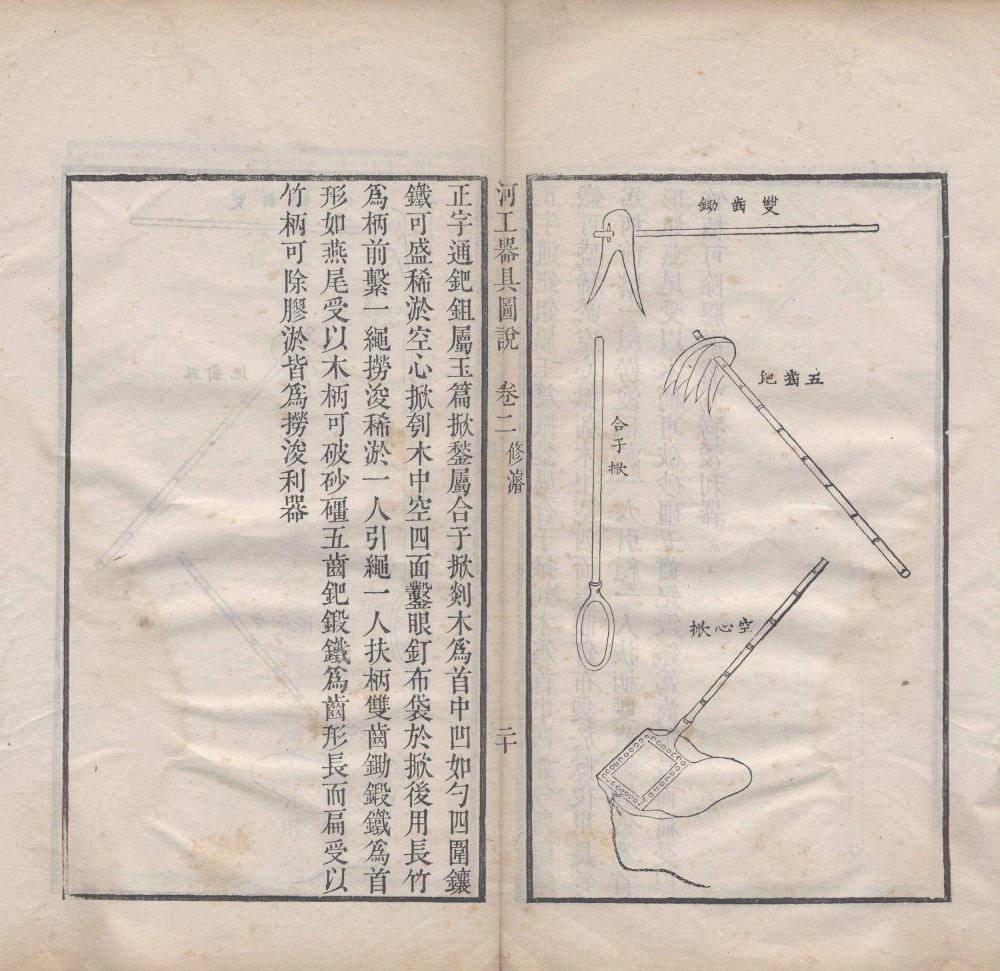 雙齒鋤
五齒鈀
合子掀
空心掀
河工器具圖說
卷二
修濬
二十
正字通鈀鉏屬玉篇掀鍫屬合子掀剡木爲首中凹如勺四圍鑲
鐵可盛稀淤空心掀刳木中空四面鑿眼釘布袋於掀後用長竹
爲柄前繫一繩撈浚稀淤一人引繩一人扶柄雙齒鋤鍛鐵爲首
形如燕尾受以木柄可破砂礓五齒鈀鍛鐵爲齒形長而扁受以
竹柄可除膠淤皆爲撈浚利器